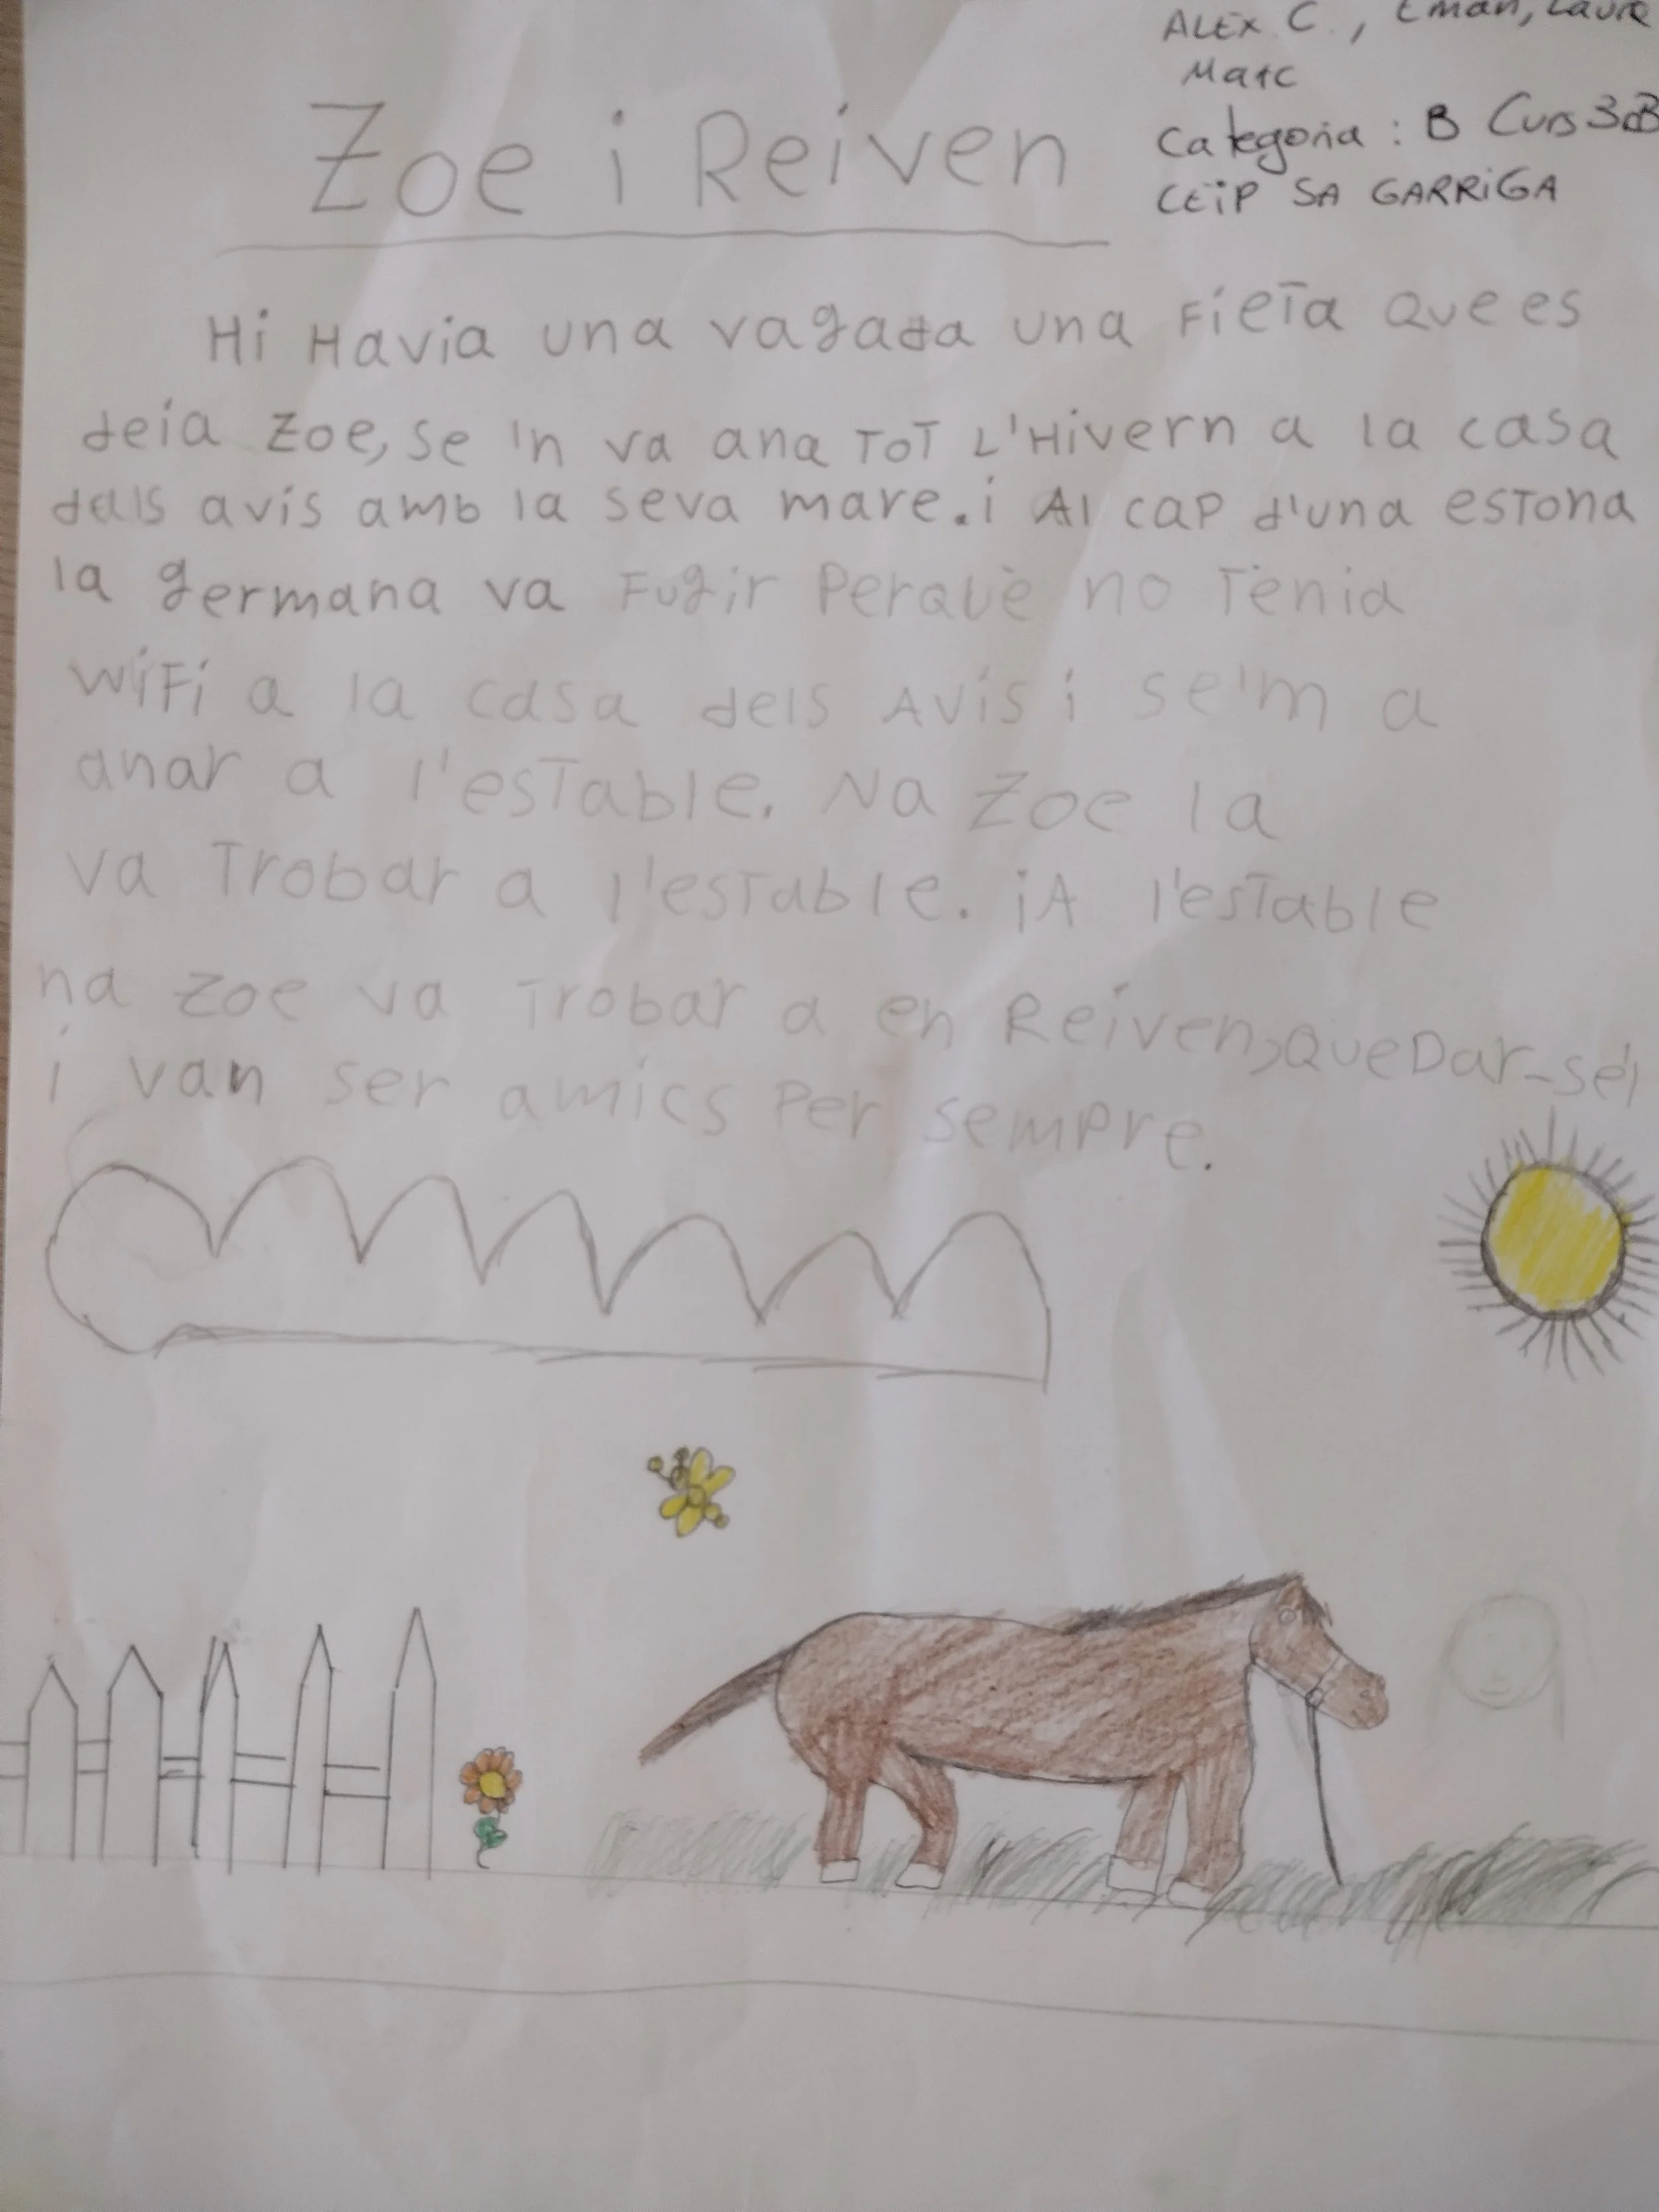 ALEX C., Eman, Laura
Marc
Categoria : B Curs 3rB
CEiP SA GARRiGA
Zoe i Reiven
Hi Havia una vagada una Fieta Que es
deia Zoe, se 'n va ana ToT L'Hivern a la casa
dals avis amb la seva mare. i Al cap d'una estona
la germana va Fugir Perquè no Tenia
WiFi a la casa dels Avis i se'm a
anar a l'estable. Na Zoe la
va Trobar a l'estable. iA l'estable
na Zoe va Trobar a en Reiven, QueDar-sei
i van ser amics Per sempre.